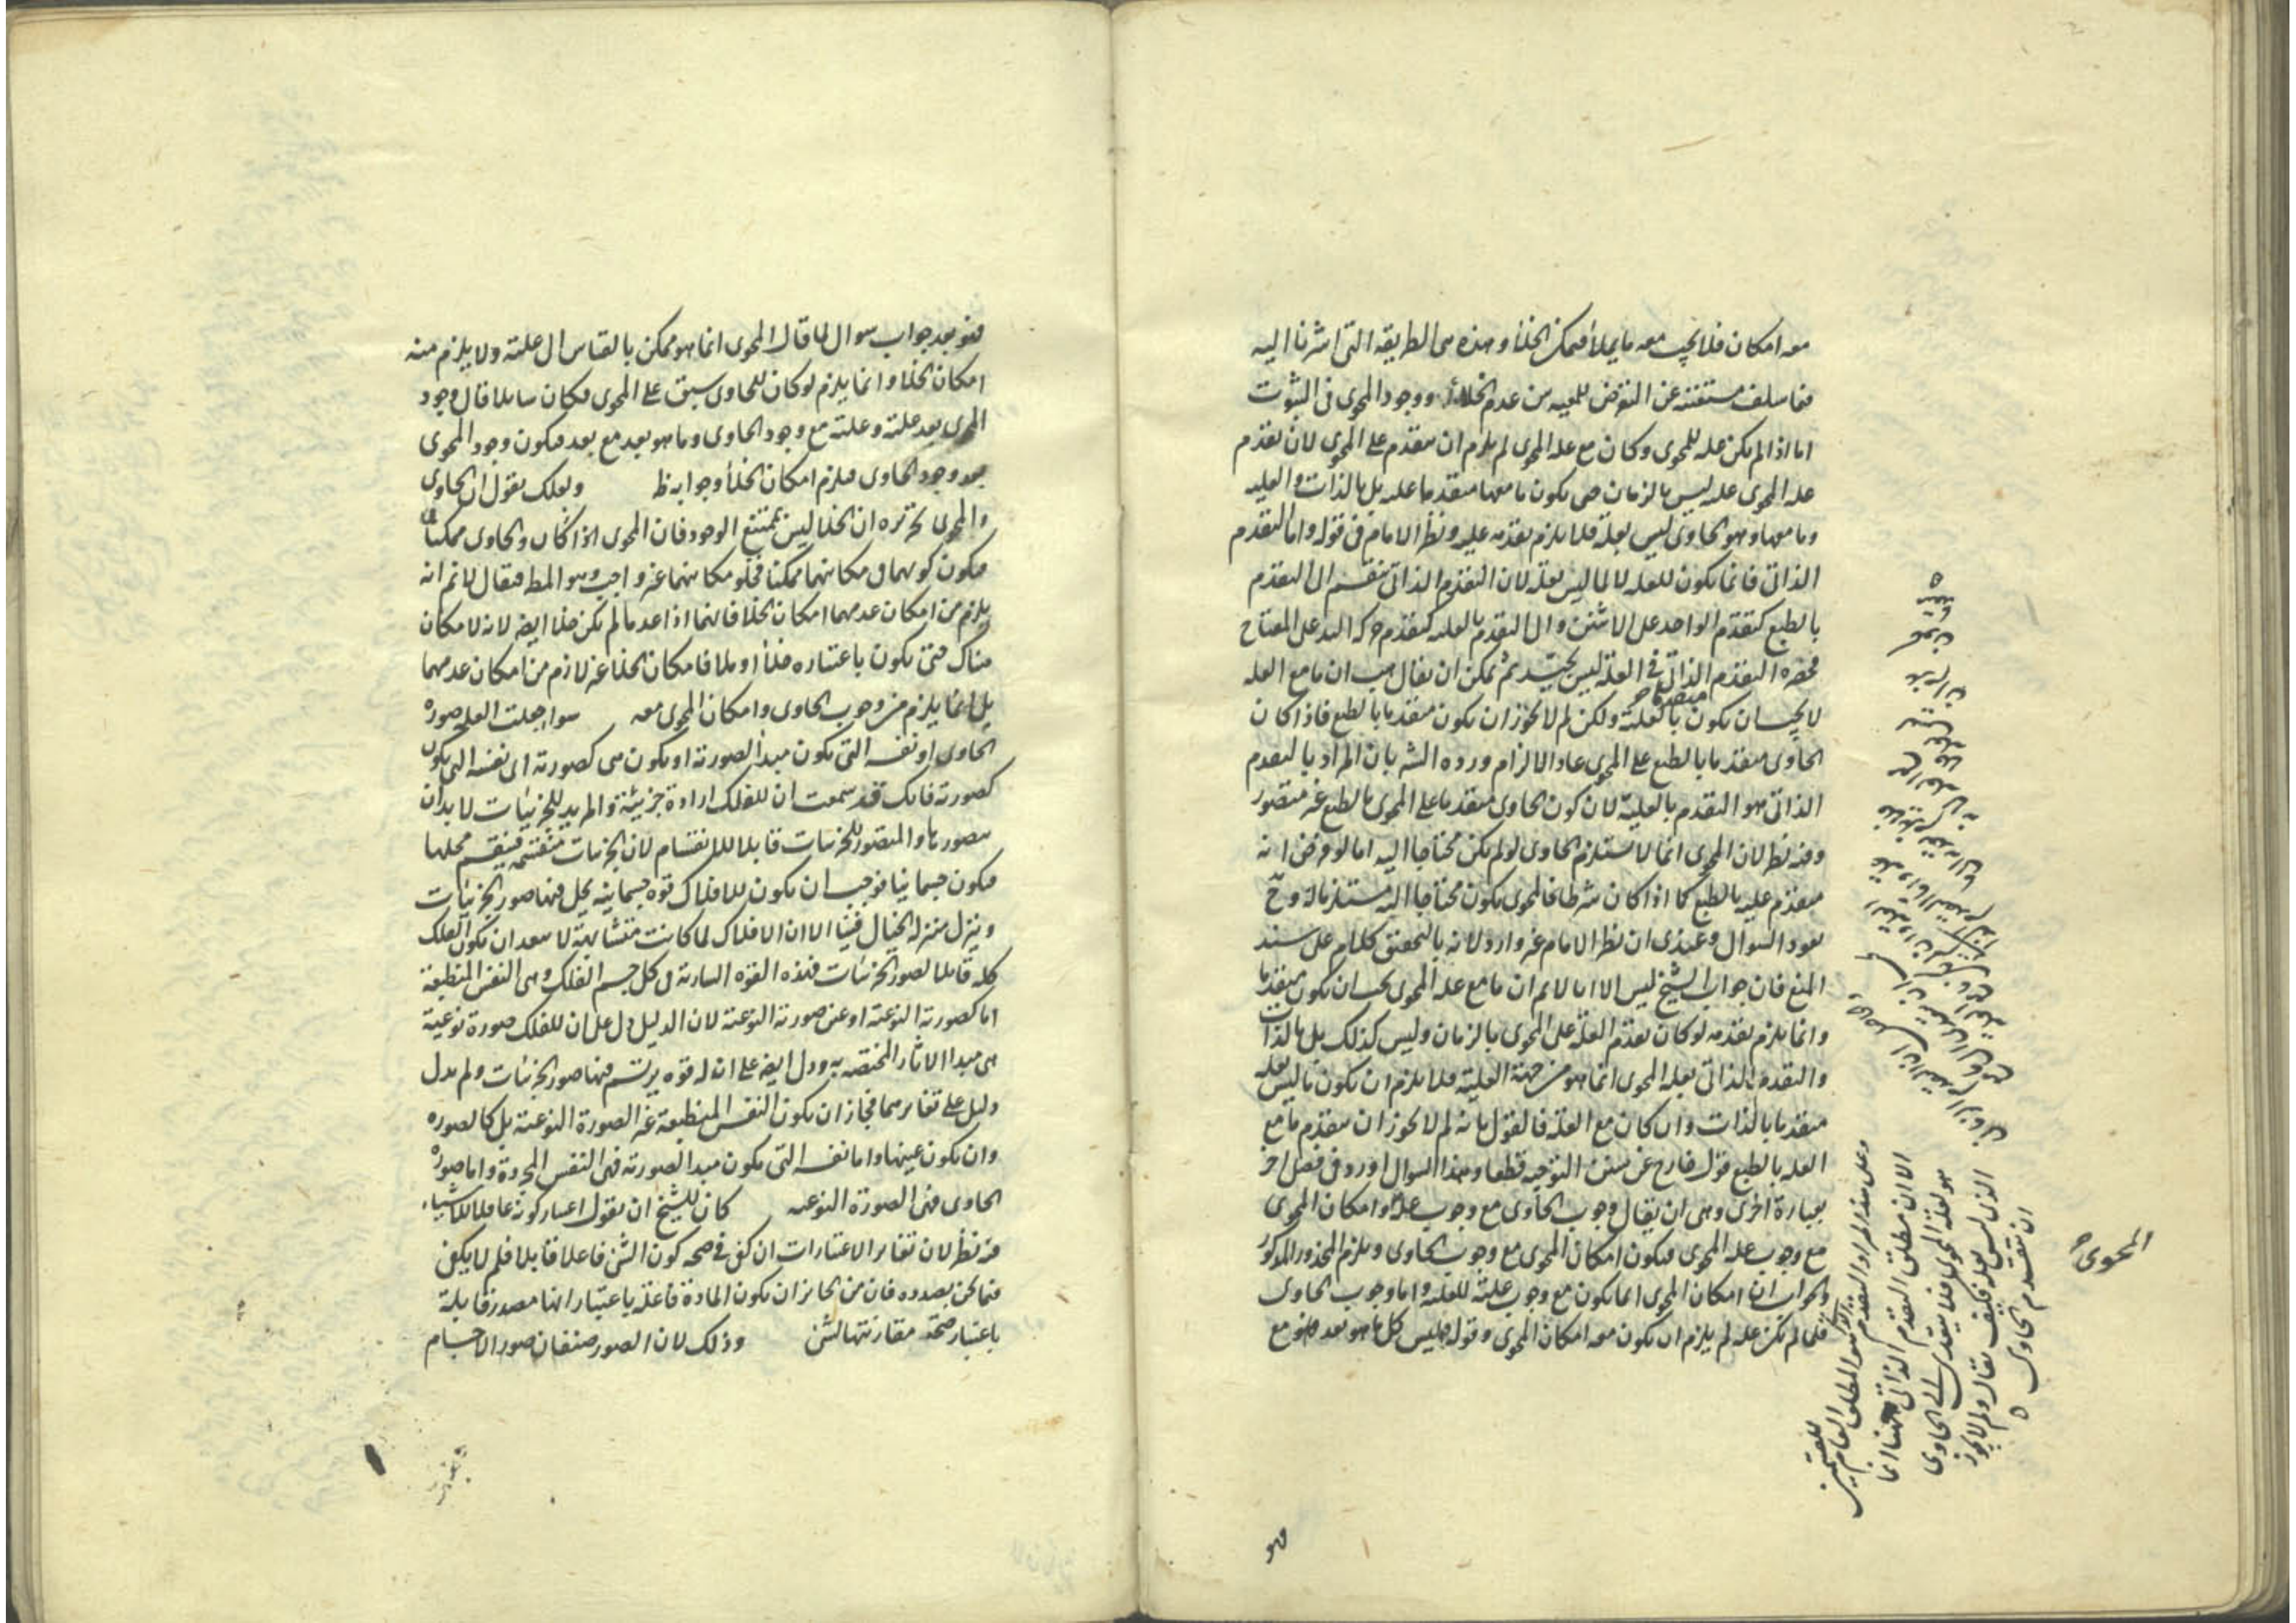 معه امكان فلا يجب معه ما يملأ فيمكن الخلأ وهذه هى الطريقه التى اشرنا اليه
فيما سلف مستغنيه عن التعرض للمعيه من عدم الخلاء ووجود المحوى فى الثبوت
اما اذا لم يكن عله للمحوى وكان مع عله المحوى لم يلزم ان يتقدم على المحوى لان تقدم
عله المحوى عليه ليس بالزمان حتى يكون ما معها متقدما عليه بل بالذات والعليه
وما معها وهو الحاوى ليس بعلة فلا يلزم تقدمه عليه ونظر الامام فى قوله واما التقدم
الذاتى فانما يكون للعله لا لما ليس بعله لان التقدم الذاتى ينقسم الى التقدم
بالطبع كتقدم الواحد على الاثنين والى التقدم بالعليه كتقدم حركه اليد على المفتاح
فحصره التقدم الذاتى فى العله ليس بجيد ثم يمكن ان يقال هب ان ما مع العله
لا يجب ان يكون متقدما بالعلية ولكن لم لا يجوز ان يكون متقدما بالطبع فاذا كان
الحاوى متقدما بالطبع على المحوى عاد الالزام ورده الشه بان المراد بالتقدم
الذاتى هو التقدم بالعلية لان كون الحاوى متقدما على المحوى بالطبع غير متصور
وفيه نظر لان المحوى انما لا يستلزم الحاوى لو لم يكن محتاجا اليه اما لو فرض انه
متقدم عليه بالطبع كما اذا كان شرطا فالمحوى يكون محتاجا اليه مستلزما له وح
يعود السوال وعندى ان نظر الامام غير وارد لانه بالتحقيق كلام على سند
المنع فان جواب الشيخ ليس الا انا لا نم ان ما مع عله المحوى يجب ان يكون متقدما
وانما يلزم تقدمه لو كان تقدم العلة على المحوى بالزمان وليس كذلك بل بالذات
والتقدم بالذاتى لعله المحوى انما هو من جهة العلية فلا يلزم ان يكون ما ليس بعله
متقدما بالذات وان كان مع العلة فالقول بانه لم لا يجوز ان يتقدم ما مع
العله بالطبع قول خارج عن سنن التوجيه قطعا وهذا السوال اورد فى فصل اخر
بعبارة اخرى وهى ان يقال وجوب الحاوى مع وجوب عله وامكان المحوى
مع وجوب عله المحوى فيكون امكان المحوى مع وجوب الحاوى ويلزم المحذور المذكور
والجواب ان امكان المحوى انما يكون مع وجوب علية للعليه واما وجوب الحاوى
فلما لم يكن عله لم يلزم ان يكون معه امكان المحوى وقوله فليس كل ما هو بعد فهو مع
وعلى هذا المراد التقدم
الا ان مطلق التقدم الذاتى ههنا انما
هو لعلة المحوى فلا يتعدى الى الحاوى
الذى ليس بعله فكيف يقال ولم لا يجوز
ان يتقدم الحاوى
المحوى
فهو
فهو بعد جواب سوال لما قال المحوى انما هو ممكن بالقياس الى علته ولا يلزم منه
امكان الخلأ وانما يلزم لو كان للحاوى سبق على المحوى فكان سايلا قال وجود
المحوى بعد علته وعلته مع وجود الحاوى وما هو بعد مع بعد فيكون وجود المحوى
بعد وجود الحاوى فيلزم امكان الخلأ وجوابه ظ ولعلك تقول ان الحاوى
والمحوى تحريره ان الخلا ليس بممتنع الوجود فان المحوى اذا كان والحاوى ممكنا
فيكون كونهما فى مكانيهما ممكنا فخلو مكانيهما غير واجب وهو المط فيقال لا نم انه
يلزم من امكان عدمهما امكان الخلا فانهما اذا عدما لم يكن خلا ايضا لانه لا مكان
هناك حتى يكون باعتباره خلأ او ملأ فامكان الخلا غير لازم من امكان عدمهما
بل انما يلزم من وجوب الحاوى وامكان المحوى معه سوا جعلت العله صوره
الحاوى او نفسه التى يكون مبدأ لصورته او يكون هى كصورته اى نفسه التى يكون
كصورته فانك قد سمعت ان للفلك ارادة جزيية والمريد للجزئيات لا بد ان
يتصورها والمتصور للجزئيات قابلا للانقسام لان الجزئيات منقسمه فينقسم محلها
فيكون جسمانيا فوجب ان يكون للافلاك قوه جسمانيه يحل فيها صور الجزئيات
وينزل منزله الخيال فينا الا ان الافلاك لما كانت متشابهة لا يبعد ان يكون الفلك
كله قابلا لصور الجزئيات فهذه القوه السارية فى كل جسم الفلك وهى النفس المنطبعة
اما كصورته النوعية او عين صورته النوعية لان الدليل دل على ان للفلك صورة نوعية
هى مبدا الاثار المختصه به ودل ايضا على ان له قوه يرتسم فيها صور الجزئيات ولم يدل
دليل على تغايرهما فجاز ان يكون النفس المنطبعة غير الصورة النوعية بل كالصوره
وان يكون عينها واما نفسه التى يكون مبدا لصورته فهى النفس المجردة واما صوره
الحاوى فهى الصورة النوعيه كان للشيخ ان يقول اعتبار كونه عاقلا للاشياء
فيه نظر لان تغاير الاعتبارات ان كفى فى صحه كون الشئ فاعلا قابلا فلم لا يكفى
فيما نحن بصدده فان من الجايز ان يكون المادة فاعلة باعتبار انها مصدر قابلة
باعتبار صحة مقارنتها لشئ وذلك لان الصور صنفان صور الاجسام